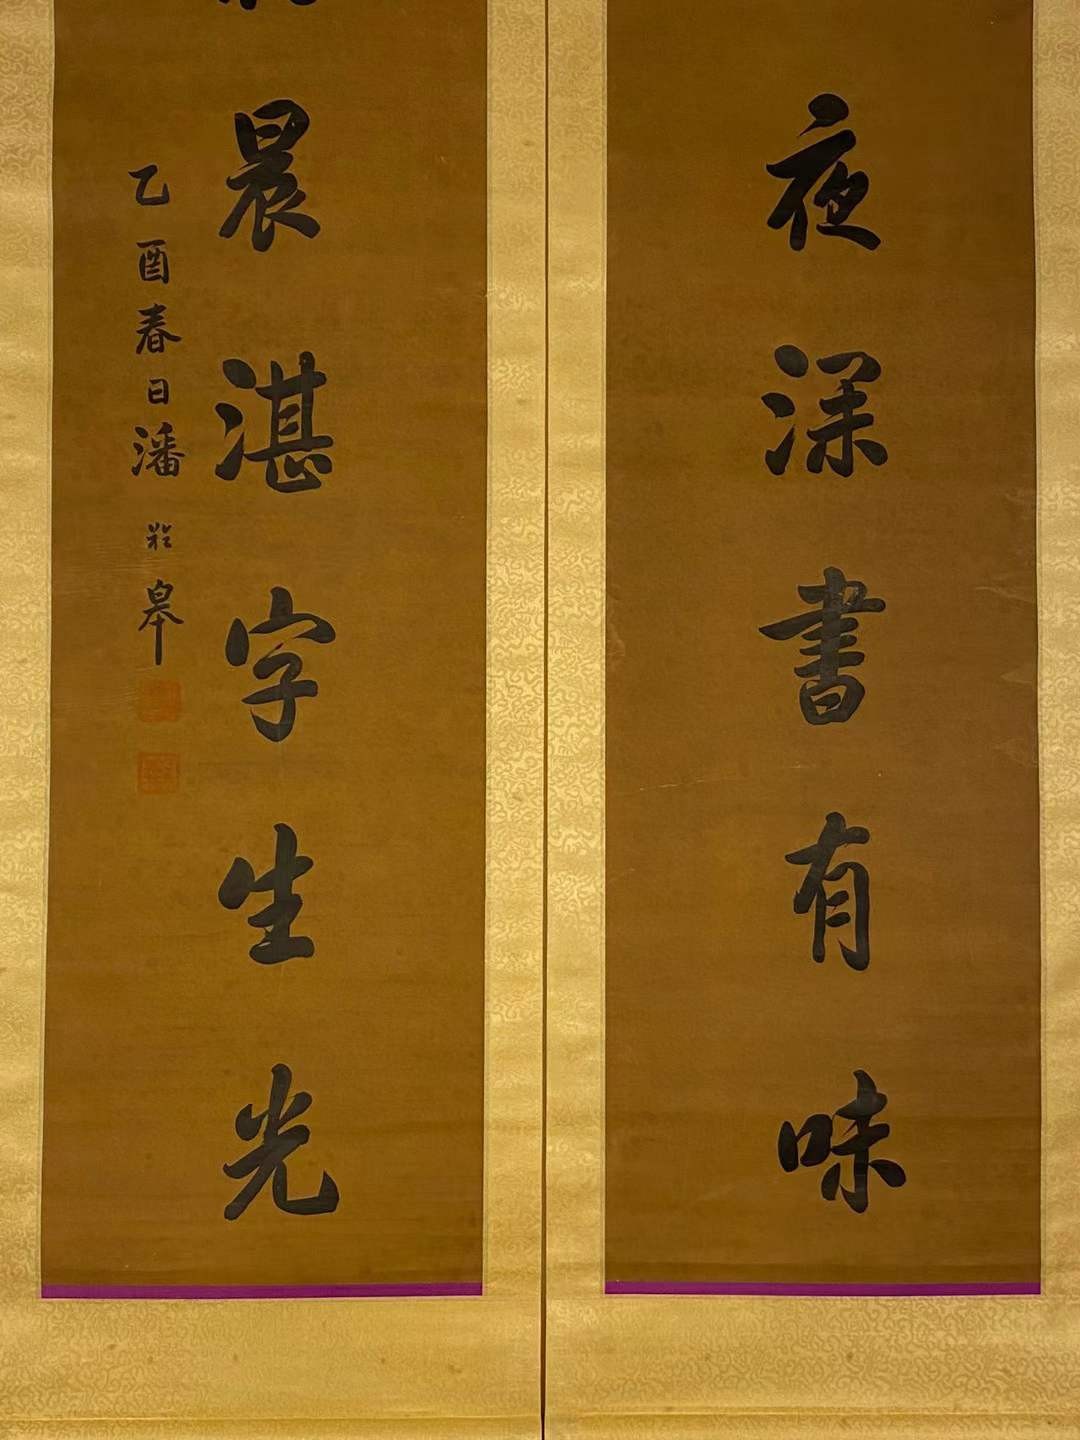 夜深書有味
晨湛字生光
乙酉春日潘於皋